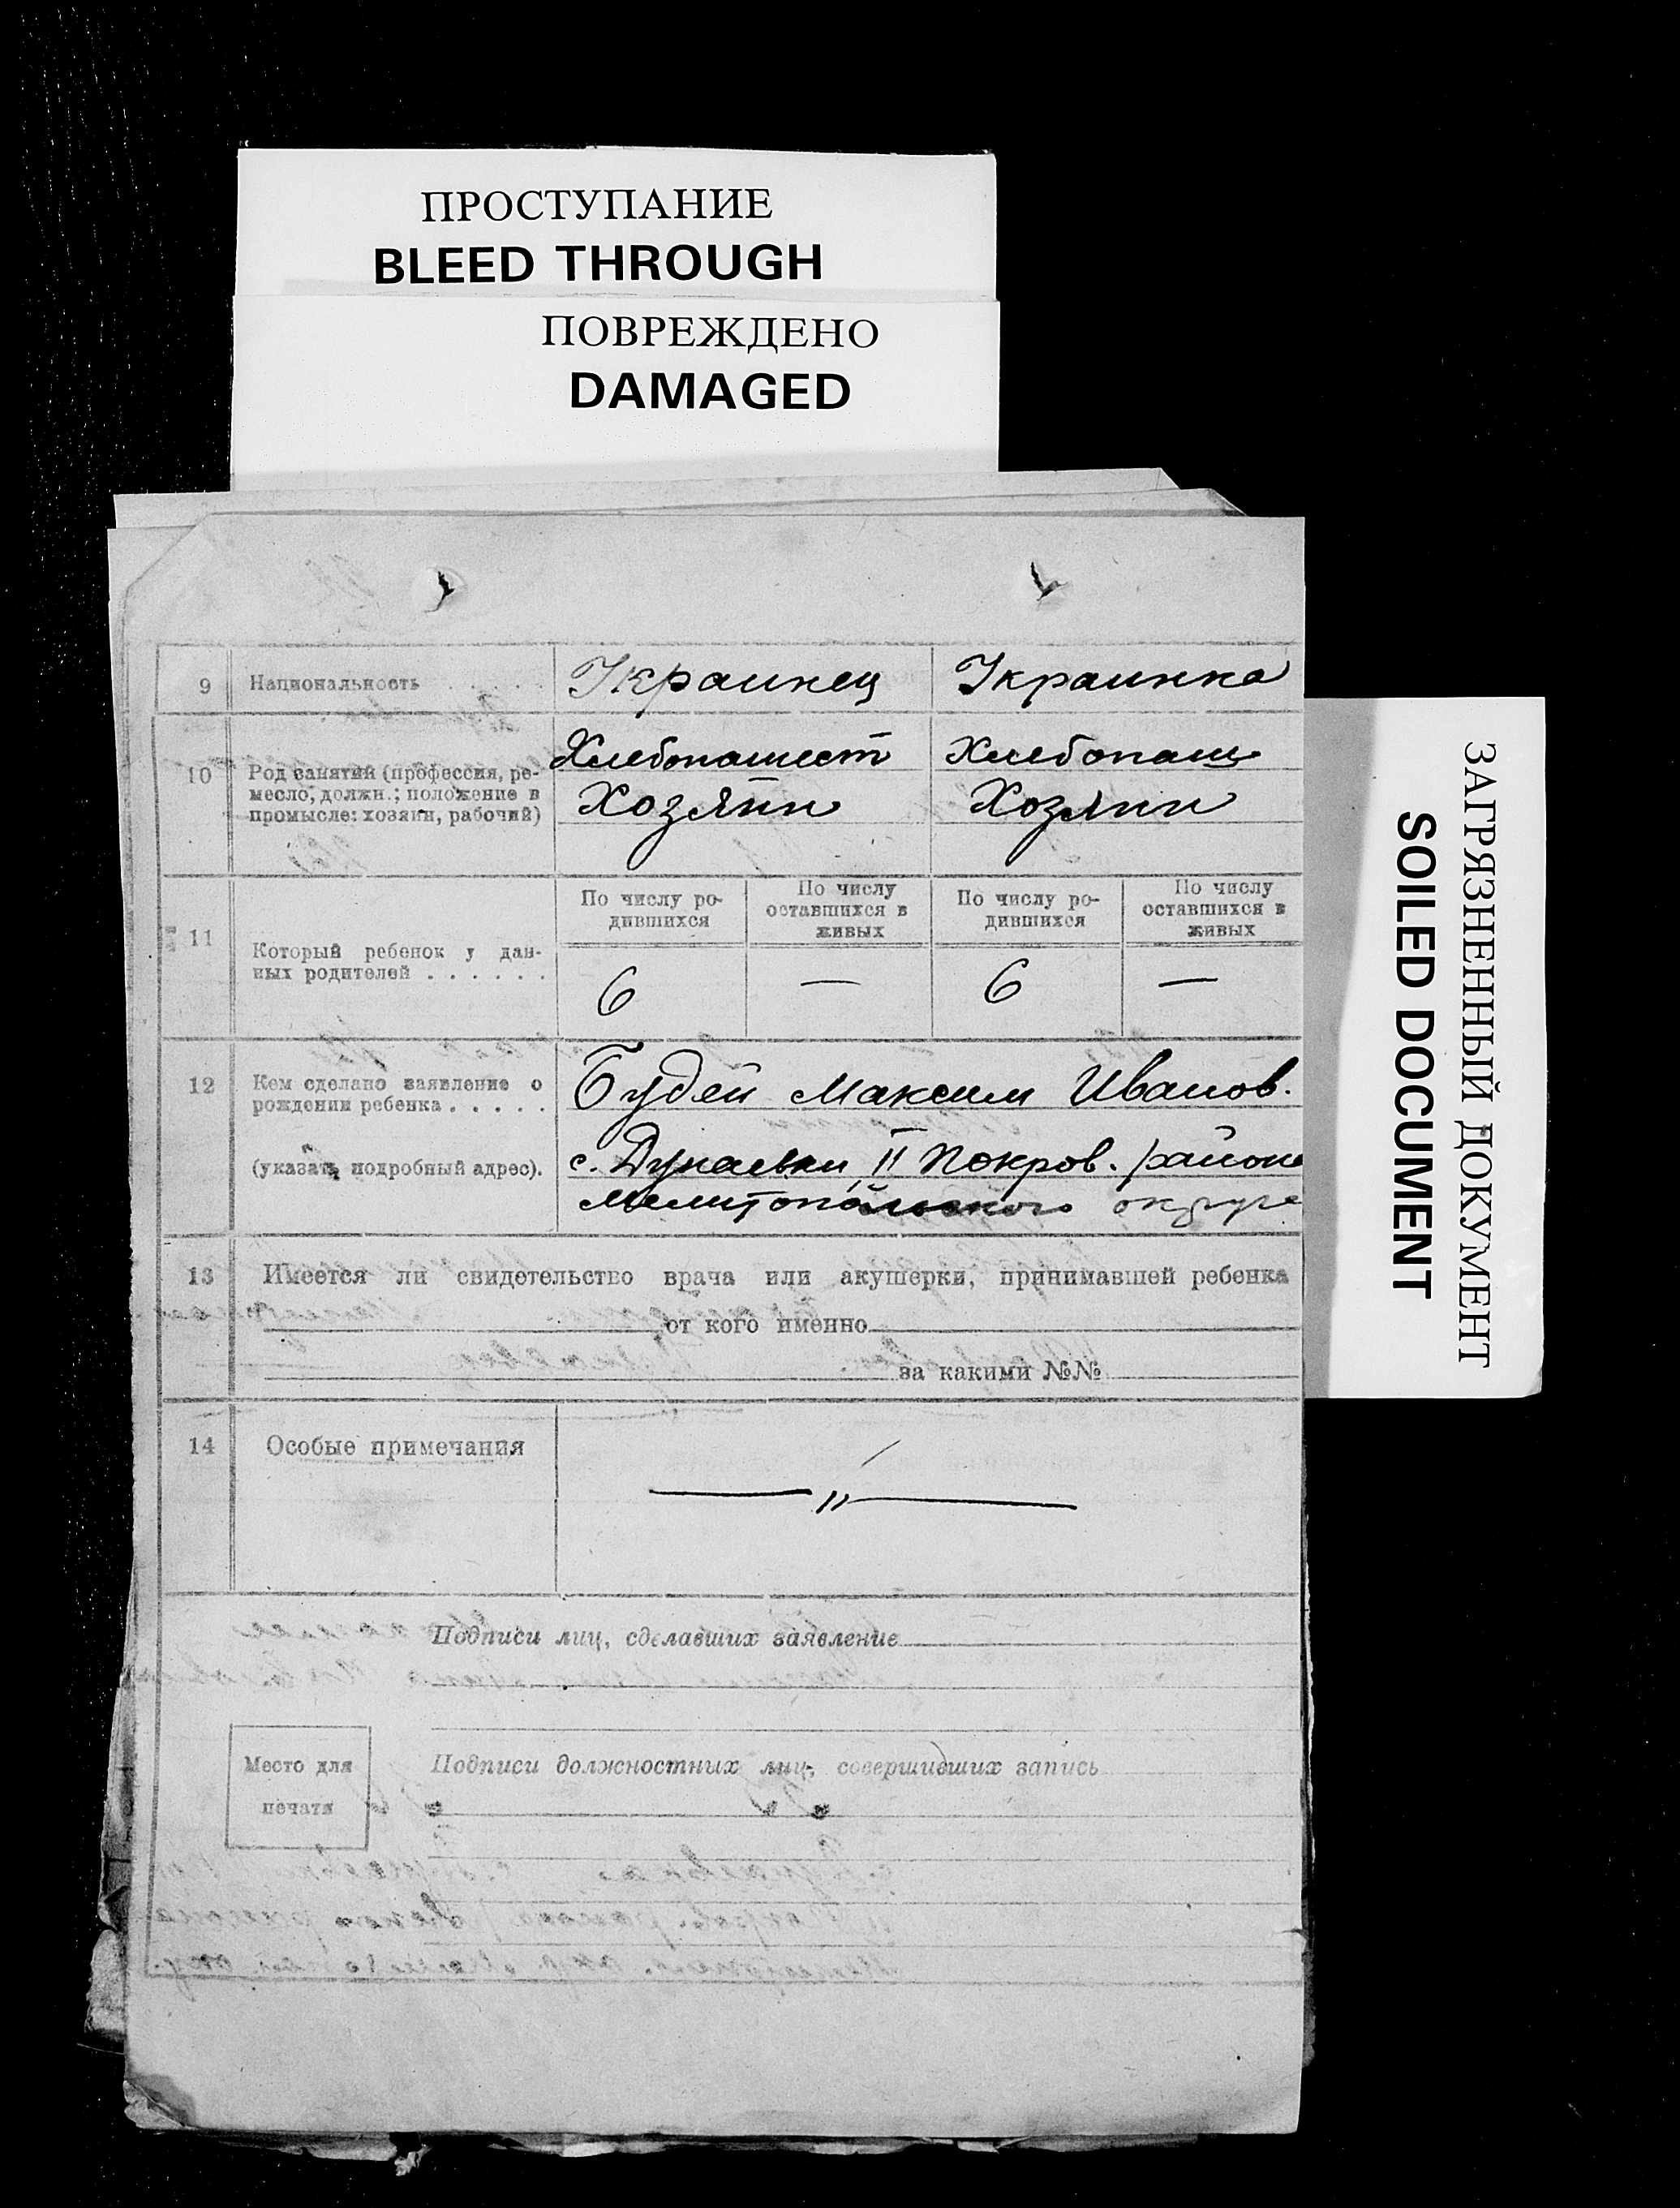 ПРОСТУПАНИЕ
BLEED THROUGH
ПОВРЕЖДЕНО
DAMAGED
9 Национальность . . . . . . Украинец Украинка
10 Род занятий (профессия, ре-
месло, должн.; положение в
промысле: хозяин, рабочий)
Хлебопашест Хлебопаш
Хозяин Хозяин
11 Который ребенок у дан-
ных родителей . . . . . .
По числу ро-
дившихся
По числу
оставшихся в
живых
По числу ро-
дившихся
По числу
оставшихся в
живых
6 — 6 —
12 Кем сделано заявление о
рождении ребенка . . . . .
(указать подробный адрес).
Будей Максим Иванов.
с. Дунаевки, II Покров. района
Мелитопольского округа
13 Имеется ли свидетельство врача или акушерки, принимавшей ребенка
от кого именно
за какими №№
14 Особые примечания
— " —
Подписи лиц, сделавших заявление
Место для
печати
Подписи должностных лиц, совершивших запись
ЗАГРЯЗНЕННЫЙ ДОКУМЕНТ
SOILED DOCUMENT